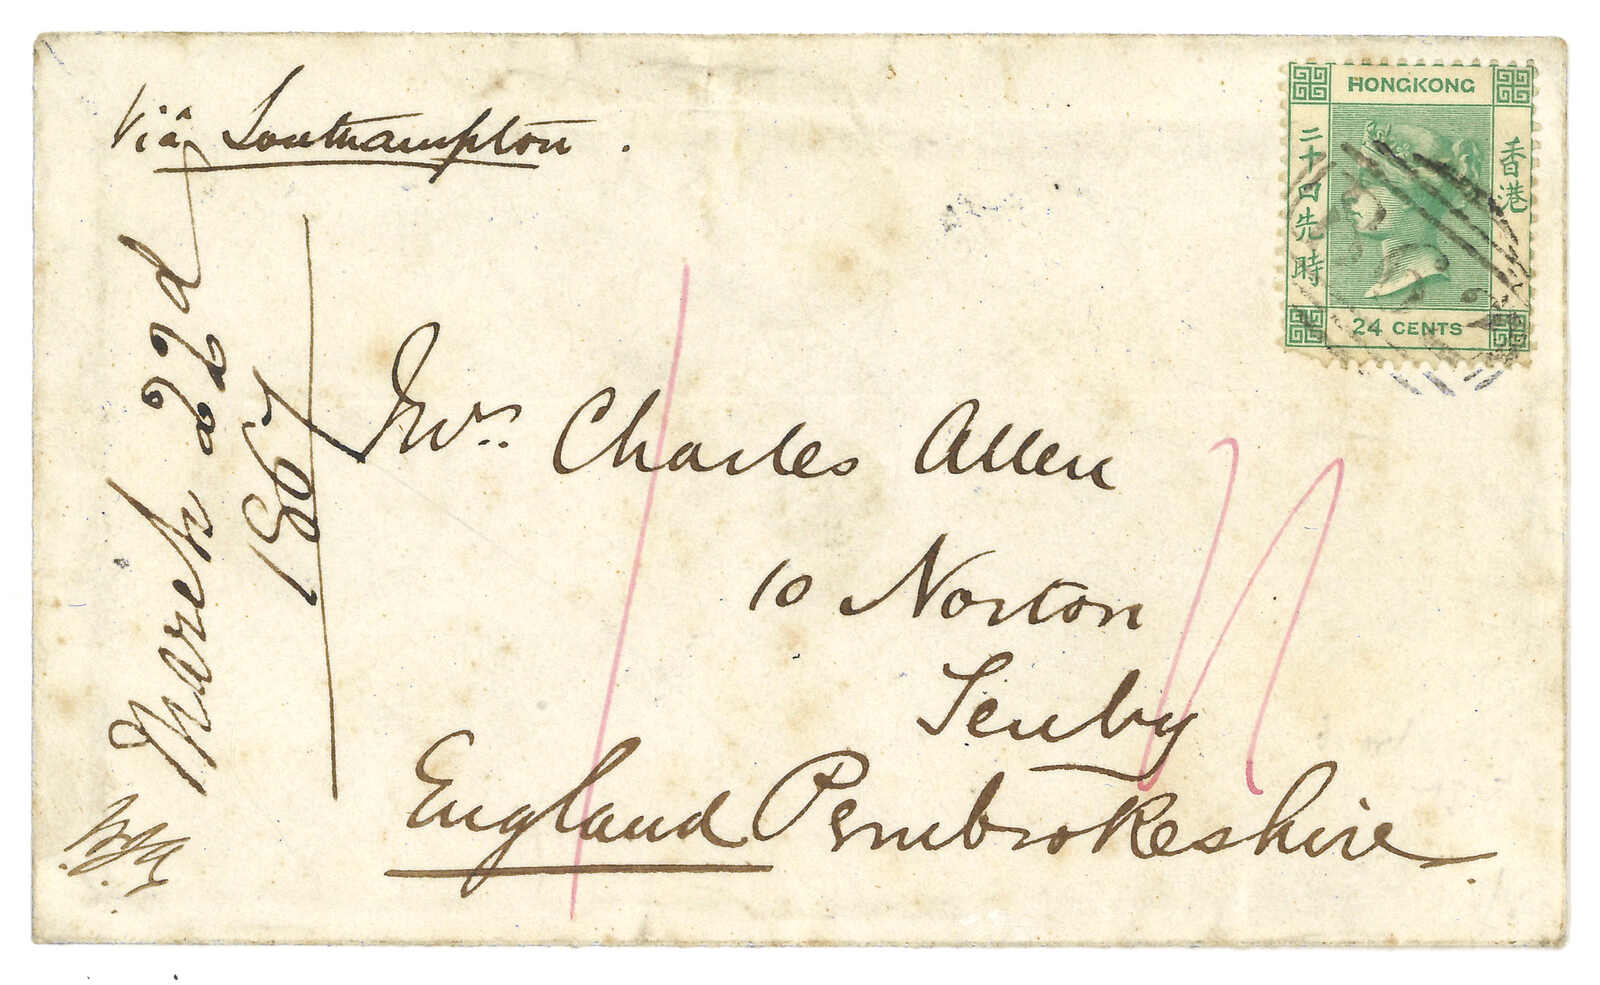 Viâ Southampton.
HONGKONG
香港
二十四先時
24 CENTS
March 22d
1867
Mrs. Charles Allen
10 Norton
Tenby
England Pembrokeshire.